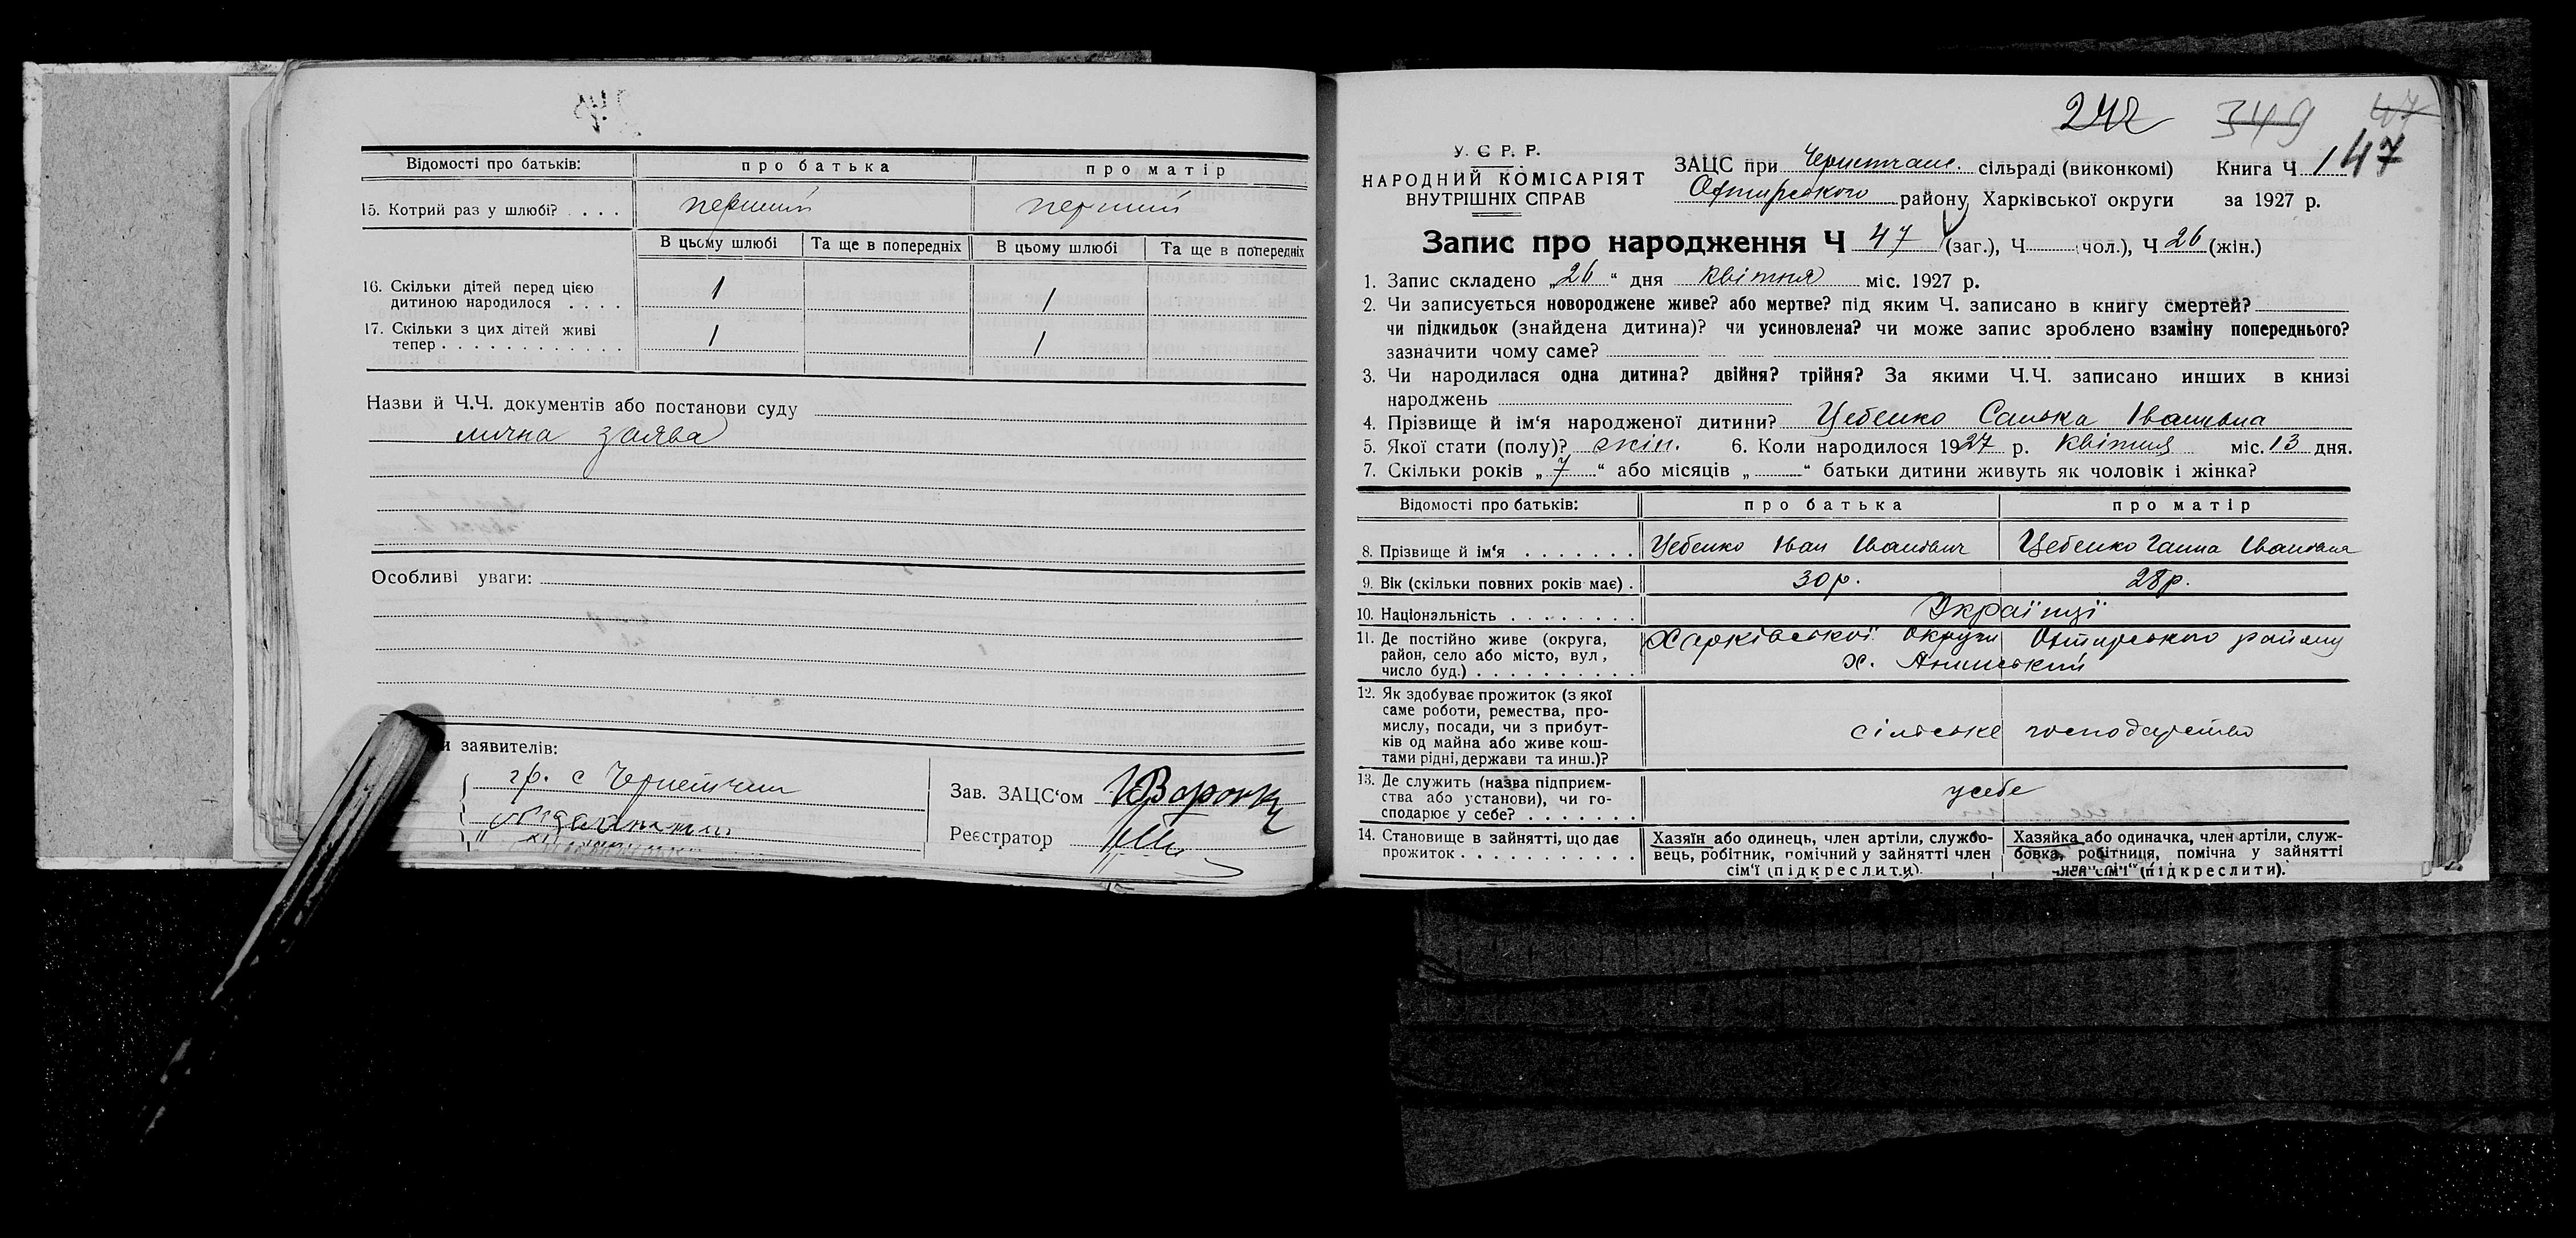 Відомості про батьків: про батька про матір
15. Котрий раз у шлюбі? . . . . перший перший
В цьому шлюбі Та ще в попередніх В цьому шлюбі Та ще в попередніх
16. Скільки дітей перед цією
дитиною народилося . . . . 1 1
17. Скільки з цих дітей живі
тепер . . . . . . . . . . . . 1 1
Назви й Ч.Ч. документів або постанови суду
лична заява
Особливі уваги:
и заявителів:
гр. с
Зав. ЗАЦС'ом
Реєстратор
242 349 47
У. С. Р. Р.
НАРОДНИЙ КОМІСАРІЯТ
ВНУТРІШНІХ СПРАВ
ЗАЦС при сільраді (виконкомі) Книга Ч 1 47
району, Харківської округи за 1927 р.
Запис про народження Ч 47 (заг.), Ч чол.), Ч 26 (жін.)
1. Запис складено „26“ дня квітня міс. 1927 р.
2. Чи записується новороджене живе? або мертве? під яким Ч. записано в книгу смертей?
чи підкидьок (знайдена дитина)? чи усиновлена? чи може запис зроблено взаміну попереднього?
зазначити чому саме?
3. Чи народилася одна дитина? двійня? трійня? За якими Ч.Ч. записано инших в книзі
народжень
4. Прізвище й ім'я народженої дитини? Цебенко Санька Іванівна
5. Якої стати (полу)? жін. 6. Коли народилося 1927 р. Квітня міс. 13 дня.
7. Скільки років „7“ або місяців „ “ батьки дитини живуть як чоловік і жінка?
Відомості про батьків: про батька про матір
8. Прізвище й ім'я . . . . . . . Цебенко Іван Іванович Цебенко Ганна Іванівна
9. Вік (скільки повних років має) . 30 р. 28 р.
10. Національність . . . . . . . . Українці
11. Де постійно живе (округа, Харківської округи Охтирського району
район, село або місто, вул., х.
число буд.) . . . . . . . . . .
12. Як здобуває прожиток (з якої
саме роботи, ремества, про-
мислу, посади, чи з прибут- сільське господарство
ків од майна або живе кош-
тами рідні, держави та инш.)?
13. Де служить (назва підприєм-
ства або установи), чи го- усебе
сподарює у себе? . . . . . . .
14. Становище в зайнятті, що дає Хазяїн або одинець, член артіли, службо- Хазяйка або одиначка, член артіли, служ-
прожиток . . . . . . . . . . . вець, робітник, помічний у зайнятті член бовка, робітниця, помічна у зайнятті
сім'ї (підкреслити). член сім'ї (підкреслити).